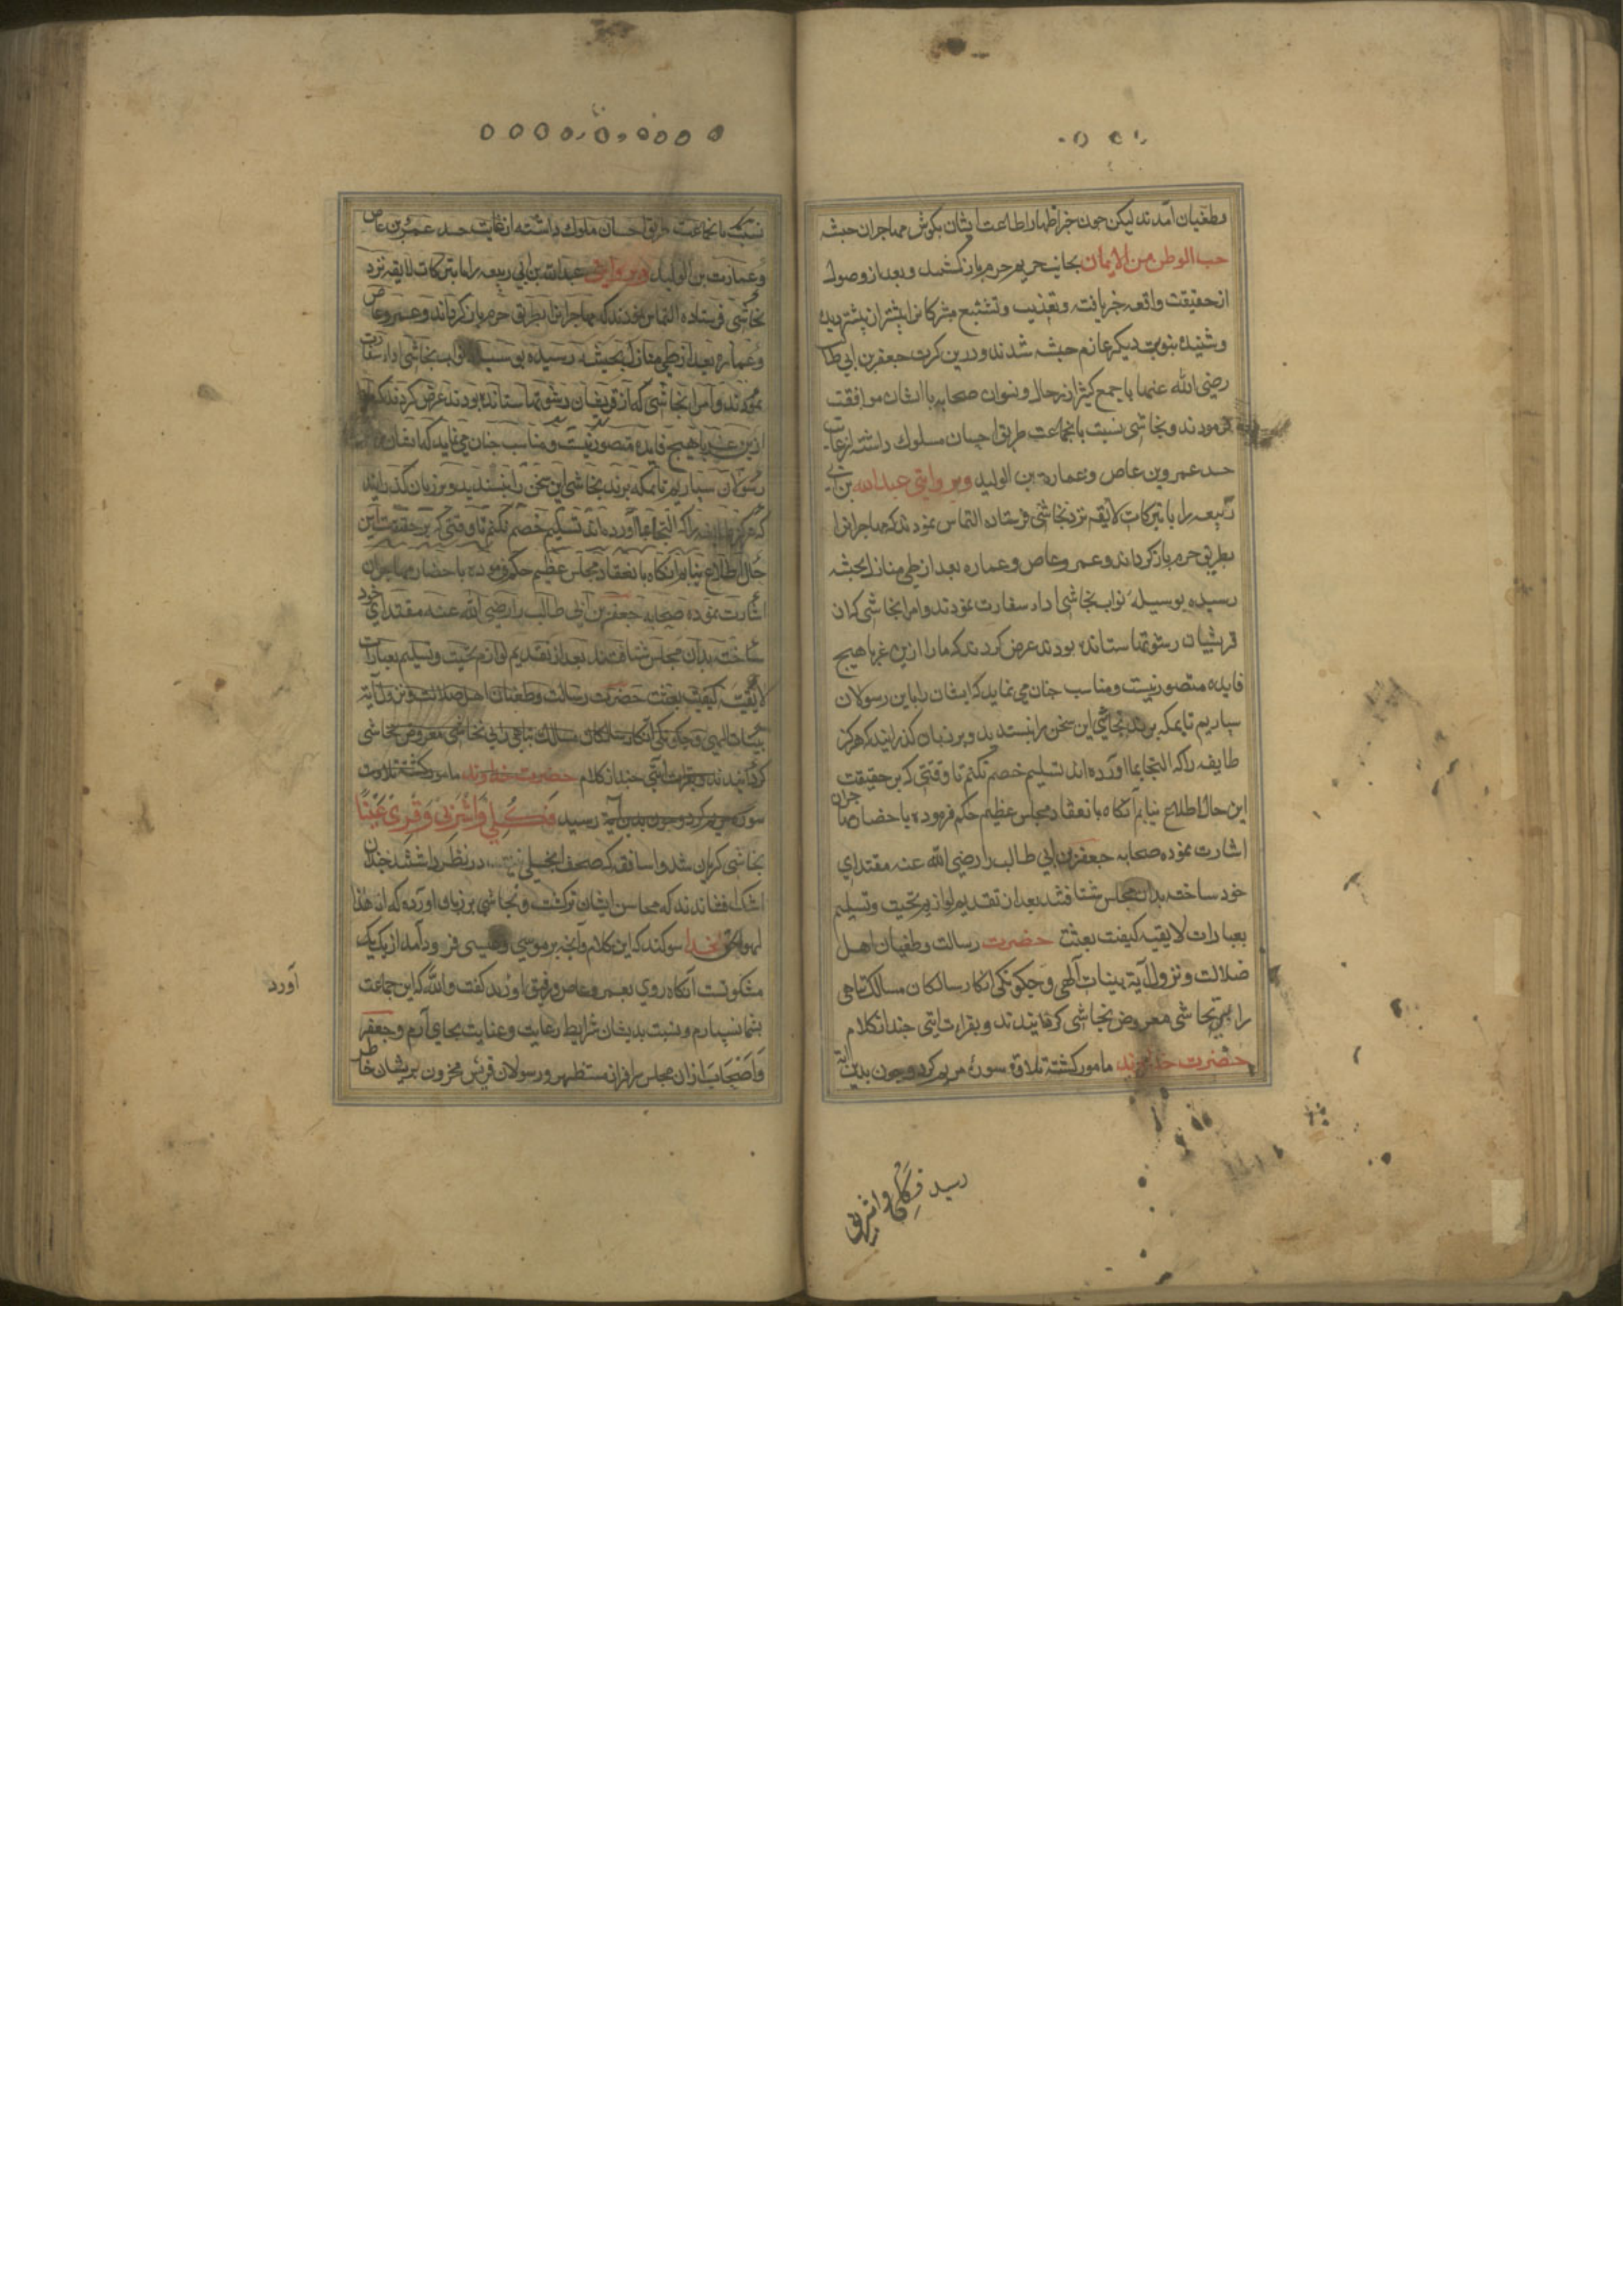 وطغیان آمدند لیکن چون خبر اظهار اطاعت ایشان بگوش مهاجران حبشه
حب الوطن من الایمان بجانب حریم حرم باز کشتند و بعد از وصول
از حقیقت واقعه خبر یافته وتعذیب وتشنیع مشرکانرا بیشتر از پیشتر دیده
وشنیده بنوبت دیکر عازم حبشه شدند ودرین کرت جعفر بن ابی طا
رضی الله عنهما با جمع کثیر از رجال و نسوان صحابه با ایشان موافقت
فرمودند ونجاشی نسبت بانجماعت طریق احسان مسلوك داشته از غایت
حسد عمرو بن عاص وعمارة بن الولید وبر وایتی عبدالله بن ابی
ربیعه را با تبرکات لایقه نزد نجاشی فرستاده التماس نمودند که مهاجرانرا
بطریق حرم باز کرداند وعمرو عاص وعماره بعد از طی منازل بحبشه
رسیده بوسیله نواب نجاشی اداء سفارت نمودند وامرا نجاشی که از ان
قریشیان رشوتها ستانده بودند عرض کردند که ما را ازین غربا هیچ
فایده متصور نیست ومناسب چنان می نماید که ایشان را باین رسولان
سپاریم تا بمکه برند نجاشی این سخن را نپسندید وبر زبان کذرانید که هرکز
طایفه را که التجا بما آورده اند تسلیم خصم نکنم تا وقتی که بر حقیقت
این حال اطلاع نیابم آنکاه بانعقاد مجلس عظیم حکم فرموده باحضار مهاجران
اشارت نموده صحابه جعفر بن ابی طالب را رضی الله عنه مقتدای
خود ساخته بدان مجلس شتافتند بعد از تقدیم لوازم تحیت وتسلیم
بعبارات لایقه کیفیت بعثت حضرت رسالت وطغیان اهل
ضلالت ونزول آیة بینات الهی وچکونکی انکار سالکان مسالک تباهی
را بی تحاشی معروض نجاشی کردانیدند وبقراءت ایتی چند از کلام
حضرت خداوند مامور کشته تلاوة سورۀ مریم کرد وچون بدین آیه
رسید فکلی واشربی
نسبت بانجماعت طریق احسان مسلوك داشته از غایت حسد عمرو بن عاص
وعمارت بن الولید وبر وایتی عبدالله بن ابی ربیعه را با تبرکات لایقه نزد
نجاشی فرستاده التماس نمودند که مهاجرانرا بطریق حرم باز کرداند وعمرو عاص
وعماره بعد از طی منازل بحبشه رسیده بوسیله نواب نجاشی اداء سفارت
نمودند وامرا نجاشی که از قریشیان رشوتها ستانده بودند عرض کردند که ما را
ازین غربا هیچ فایده متصور نیست ومناسب چنان می نماید که ایشان
رسولان سپاریم تا بمکه برند نجاشی این سخن را نپسندید وبر زبان کذرانید
که هرکز طایفه را که التجا بما آورده اند تسلیم خصم نکنم تا وقتی که بر حقیقت این
حال اطلاع نیابم آنکاه بانعقاد مجلس عظیم حکم فرموده باحضار مهاجران
اشارت نموده صحابه جعفر بن ابی طالب را رضی الله عنه مقتدای خود
ساخته بدان مجلس شتافتند بعد از تقدیم لوازم تحیت وتسلیم بعبارات
لایقه کیفیت بعثت حضرت رسالت وطغیان اهل ضلالت ونزول آیة
بینات الهی وچکونکی انکار سالکان مسالک تباهی را بی تحاشی معروض نجاشی
کردانیدند وبقراءت ایتی چند از کلام حضرت خداوند مامور کشته تلاوت
سوره مریم کرد وچون بدین آیه رسید فکلی واشربی وقری عینا
نجاشی کریان شد واساقفه که صحف انجیلی در نظر داشتند چندان
اشک افشاندند که محاسن ایشان تر کشت ونجاشی بر زبان آورده که ان هذا
لهو الحق بخدا سوکند که این کلام وآنچه بر موسی وعیسی فرود آمد از یک
مشکوتست آنکاه روی بعمرو عاص ورفیق او آورد کفت والله که این جماعت
بشما نسپارم ونسبت بدیشان شرایط رعایت وعنایت بجای آرم وجعفر
واصحاب از ان مجلس سرافراز مستظهر ورسولان قریش محزون پریشان خاطر
آورد